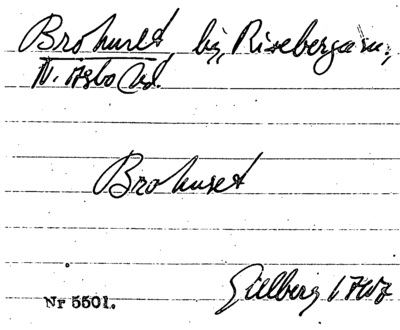 Brohuset, by, Riseberga sn.,
N. Åsbo hd.
Brohuset
Gillberg 1767
Nr 5501.